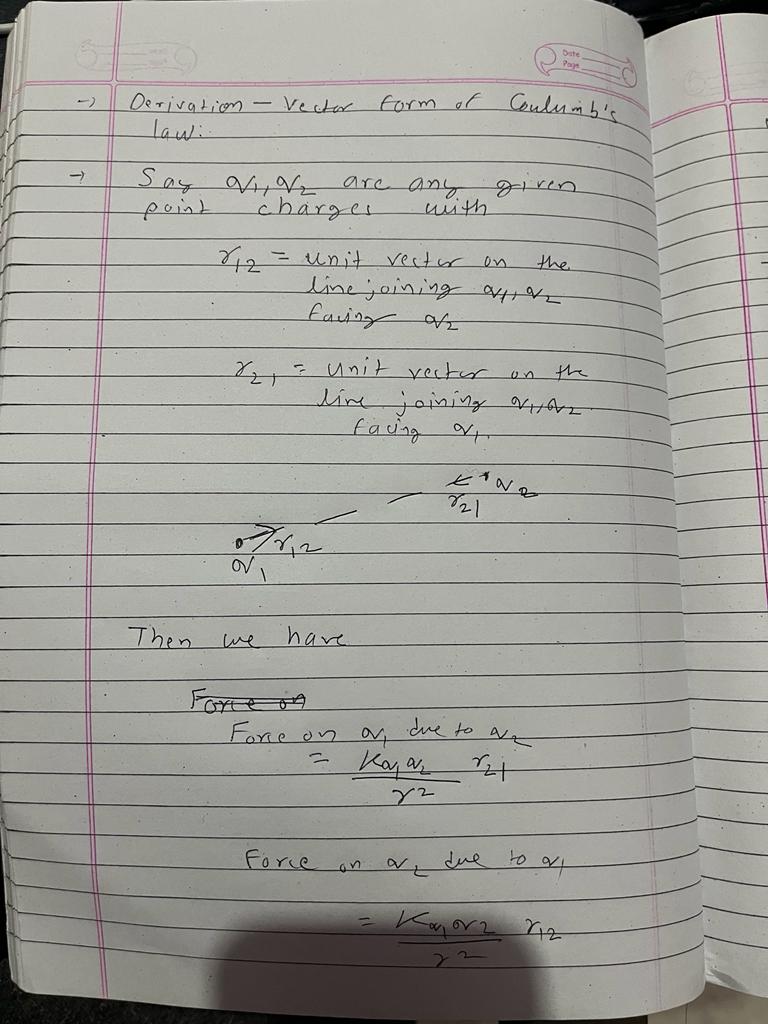 Date
Page
→ Derivation – Vector form of Coulumb's
law:
→ Say q1, q2 are any given
point charges with
r12 = unit vector on the
line joining q1, q2
facing q2
r21 = unit vector on the
line joining q1, q2
facing q1.
q2
r21
r12
q1
Then we have
Force on
Force on q1 due to q2
= Kq1q2/r2 r21
Force on q2 due to q1
= Kq1q2/r2 r12